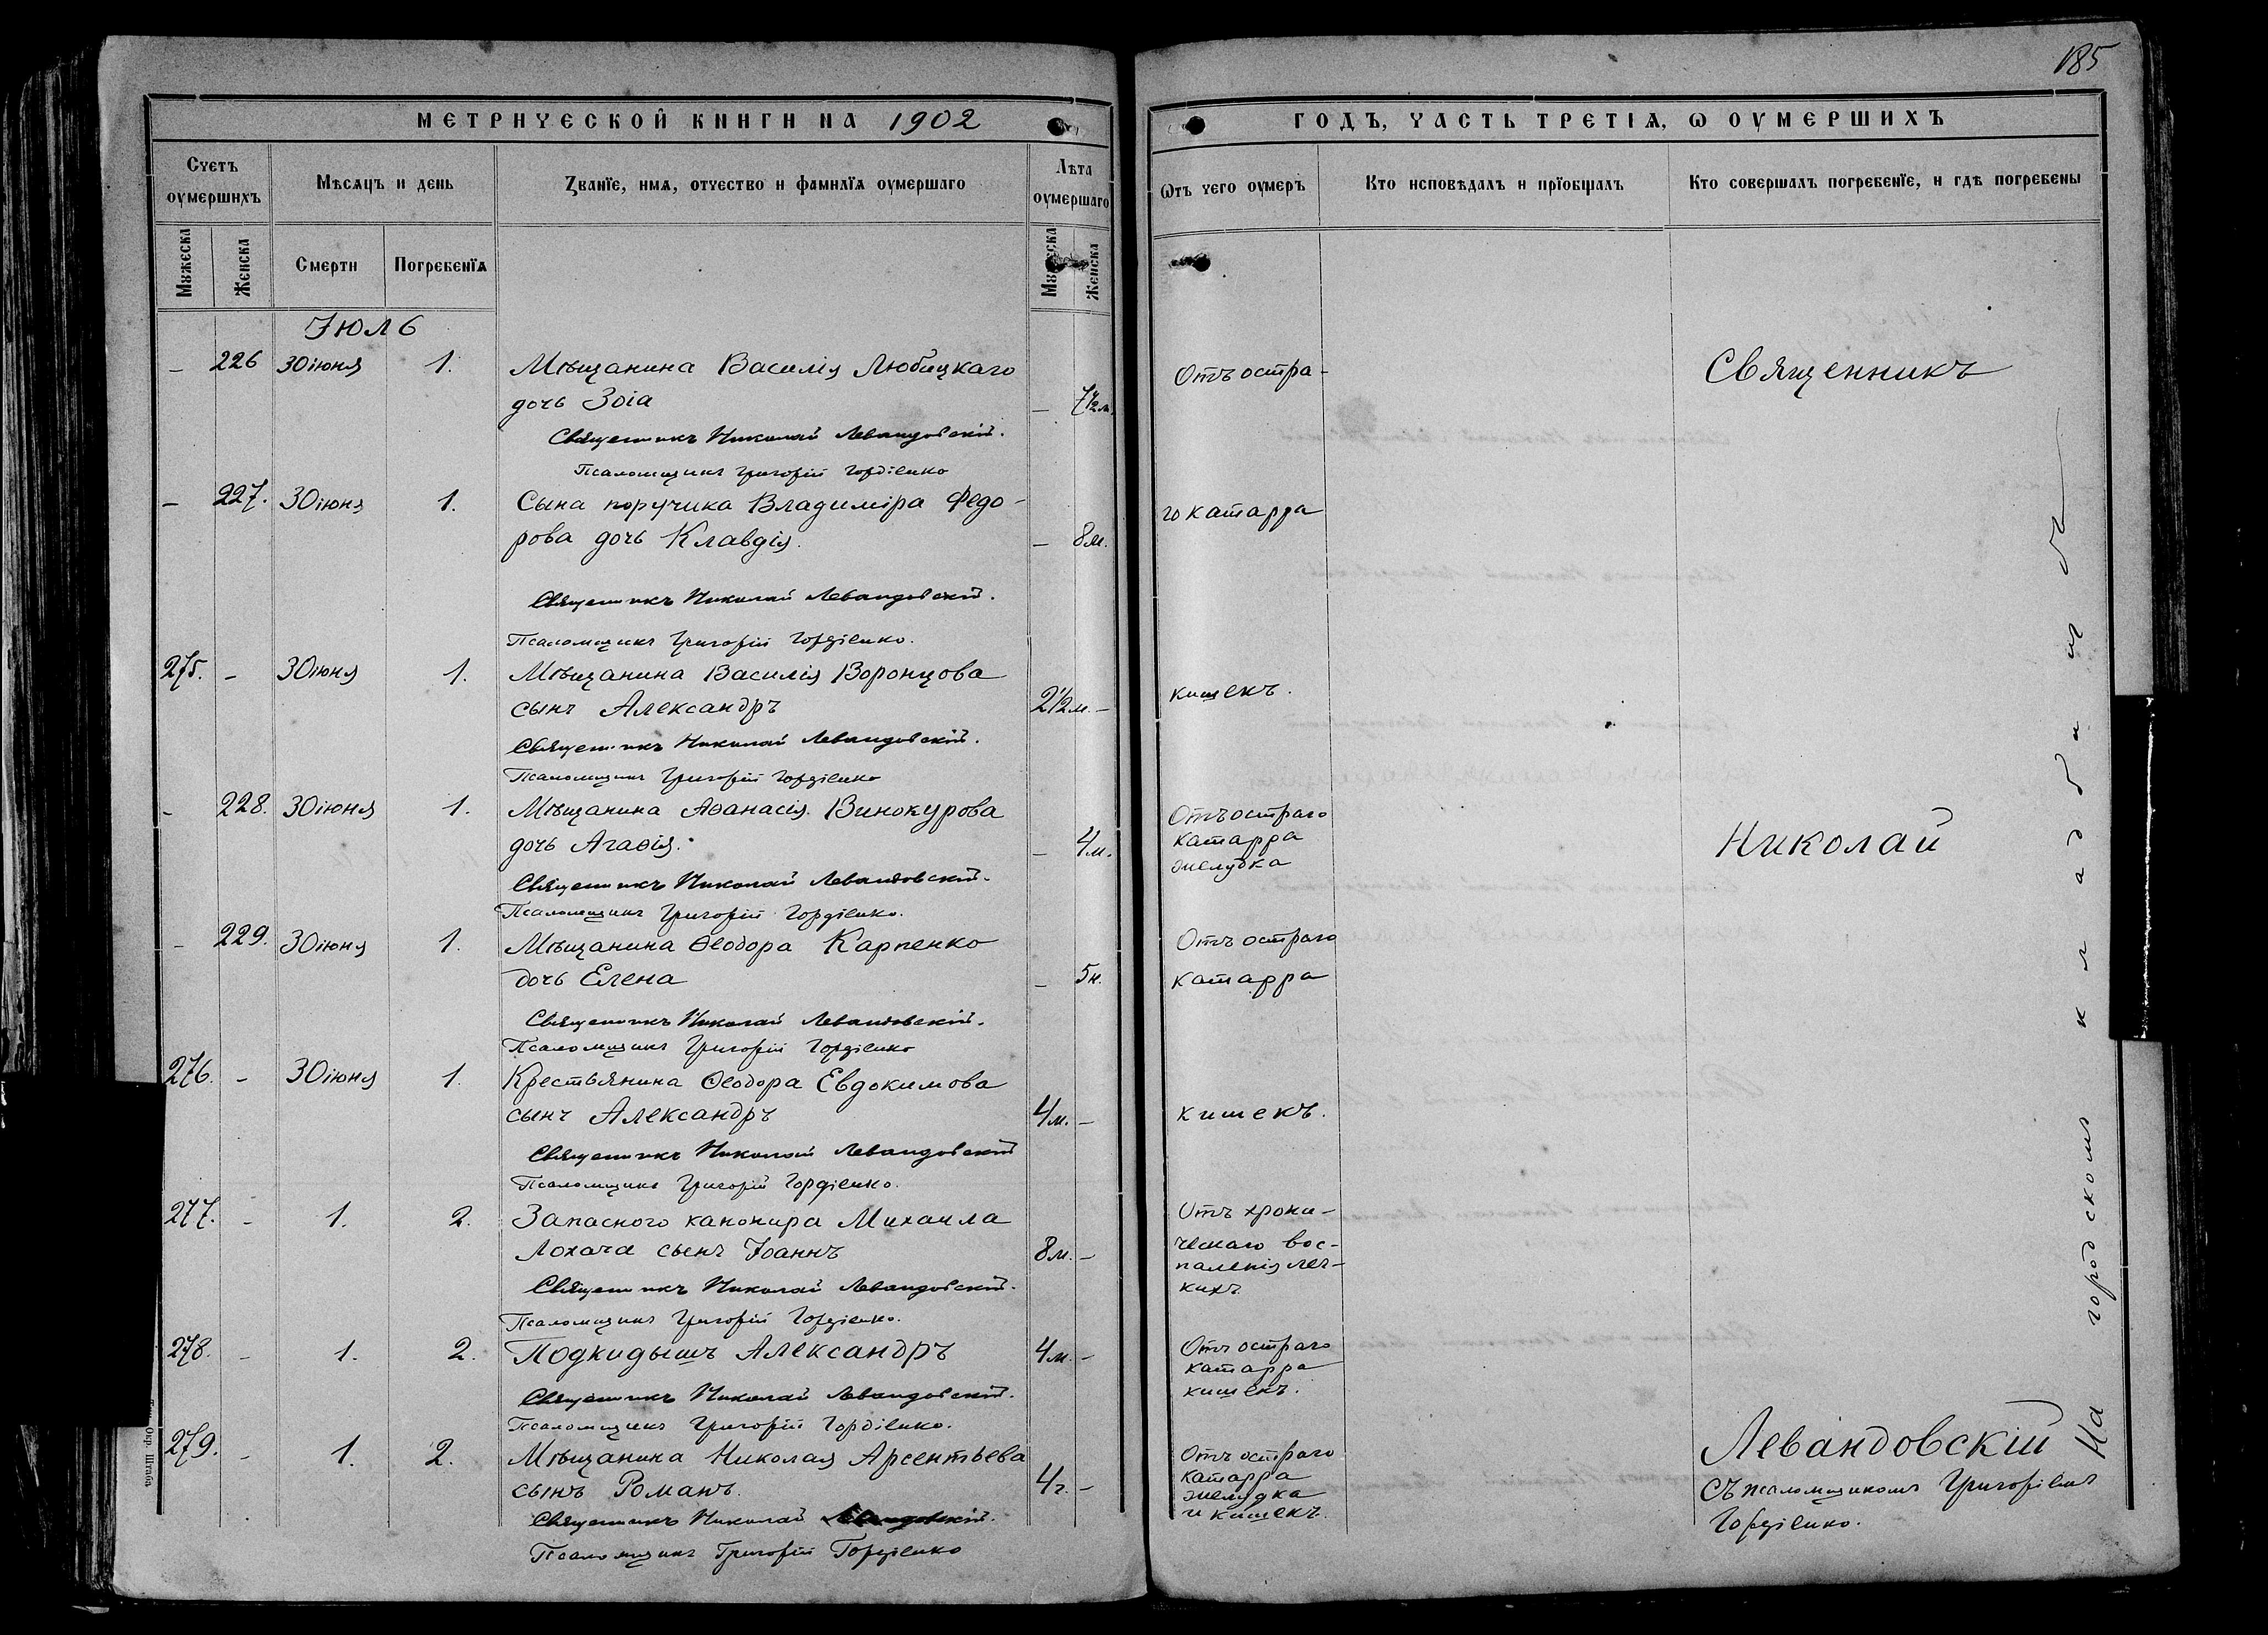 185
МЕТРИЧЕСКОЙ КНИГИ НА 1902
ГОДЪ, ЧАСТЬ ТРЕТІѦ, Ѡ ОУМЕРШИХЪ
Счетъ оумершихъ
Мѣсѧцъ и день
Званїе, имѧ, отчество и фамилїѧ оумершаго
Лѣта оумершаго
Ѿтъ чего оумеръ
Кто исповѣдалъ и прїобщалъ
Кто совершалъ погребенїе, и гдѣ погребены
Мꙋжеска
Женска
Смерти
Погребенїѧ
Мꙋжеска
Женска
Іюль
– 226 30 іюня 1. Мѣщанина Василія Любицкаго
дочь Зоіа – 7½ м.
Отъ остра-
Священникъ Николай Левандовскій.
Псаломщикъ Григорій Гордіенко
– 227. 30 іюня 1. Сына поручика Владиміра Федо-
рова дочь Клавдія. – 8 м.
го катарра
Священникъ Николай Левандовскій.
Псаломщикъ Григорій Гордіенко.
275. – 30 іюня 1. Мѣщанина Василія Воронцова
сынъ Александръ 2½ м. –
кишекъ.
Священникъ Николай Левандовскій.
Псаломщикъ Григорій Гордіенко
– 228. 30 іюня 1. Мѣщанина Аѳанасія Винокурова
дочь Агаѳія. – 4 м.
Отъ остраго
катарра
желудка
Священникъ Николай Левандовскій.
Псаломщикъ Григорій Гордіенко.
– 229. 30 іюня 1. Мѣщанина Ѳеодора Карпенко
дочь Елена – 5 н.
Отъ остраго
катарра
Священникъ Николай Левандовскій.
Псаломщикъ Григорій Гордіенко
276. – 30 іюня 1. Крестьянина Ѳеодора Евдокимова
сынъ Александръ 4 м. –
кишекъ.
Священникъ Николай Левандовскій
Псаломщикъ Григорій Гордіенко.
277. – 1. 2. Запасного канонира Михаила
Лохача сынъ Іоаннъ 8 м. –
Отъ хрони-
ческаго вос-
паленія лег-
кихъ
Священникъ Николай Левандовскій.
Псаломщикъ Григорій Гордіенко.
278. – 1. 2. Подкидышъ Александръ 4 м. –
Отъ остраго
катарра
кишекъ.
Священникъ Николай Левандовскій.
Псаломщикъ Григорій Гордіенко.
279. – 1. 2. Мѣщанина Николая Арсентьева
сынъ Романъ. 4 г. –
Отъ остраго
катарра
желудка
и кишекъ.
Священникъ Николай Левандовскій.
Псаломщикъ Григорій Гордіенко
Священникъ
Николай
Левандовскій
съ псаломщикомъ Григоріемъ
Гордіенко.
На городскомъ кладбищѣ
Окр. Штаба